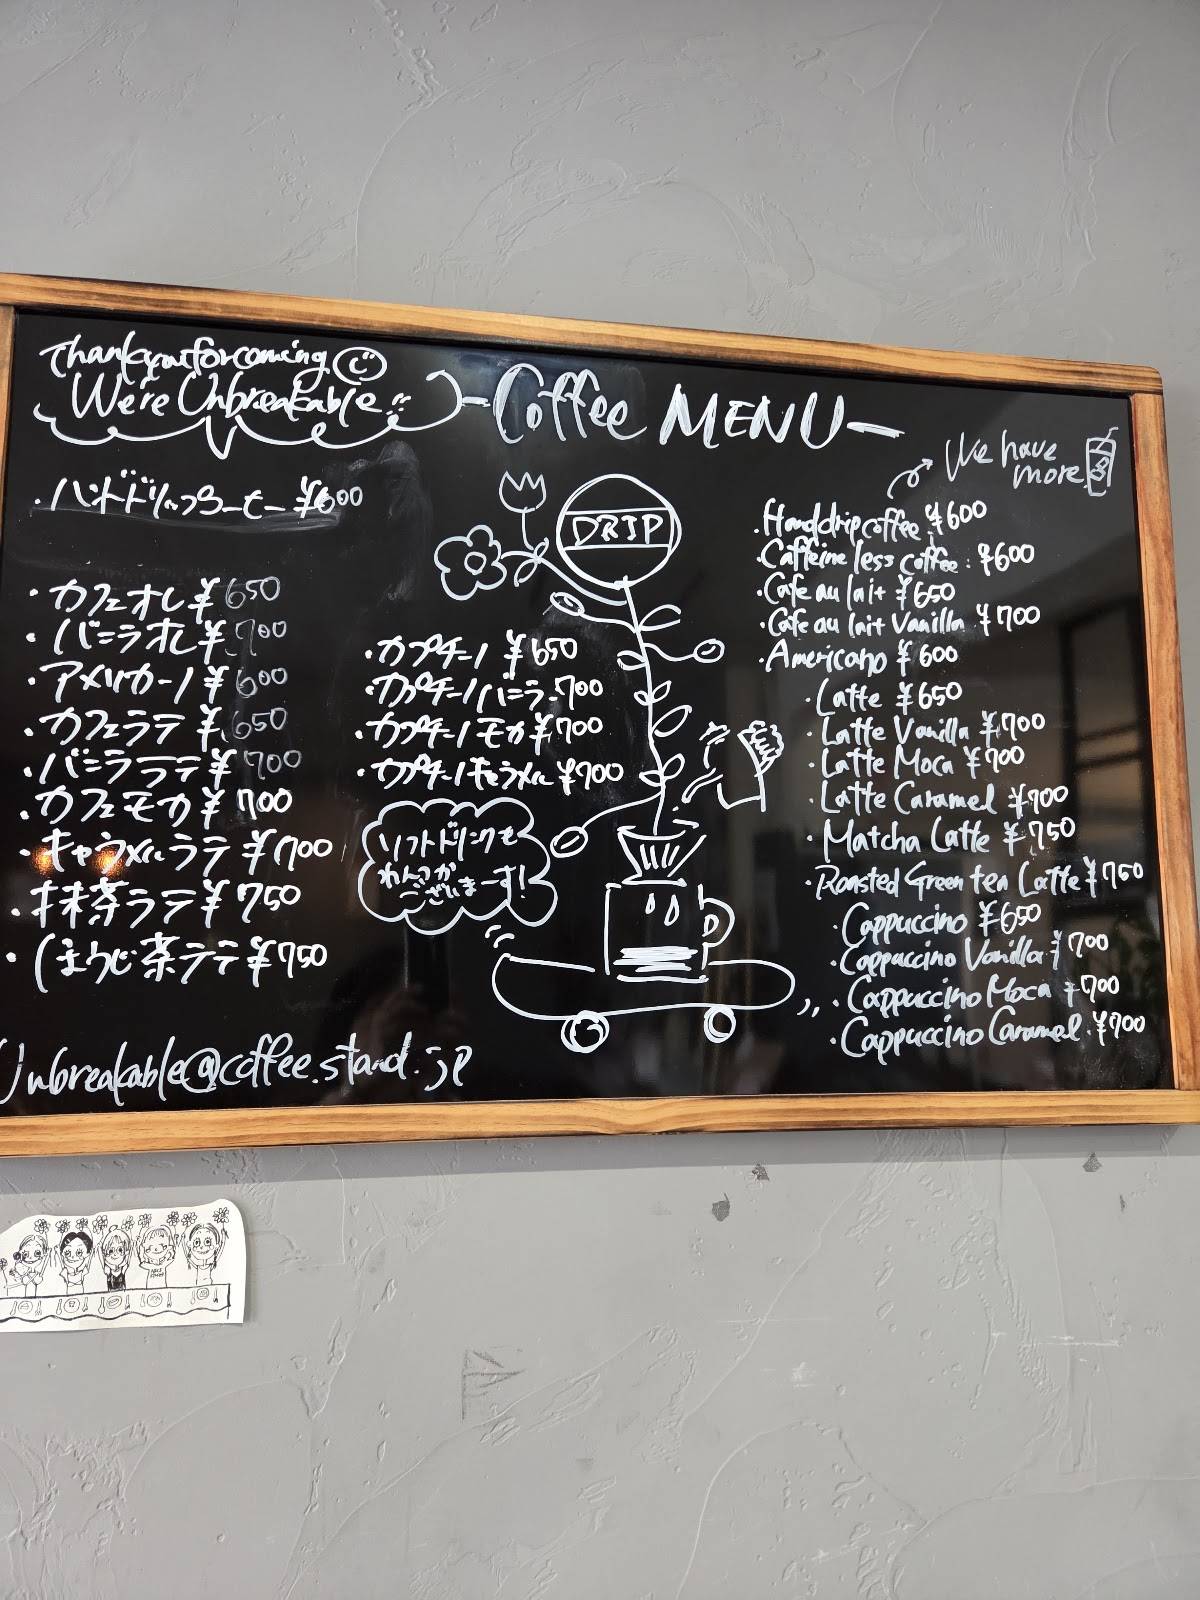 Thank you for coming
We're Unbreakable
-Coffee MENU-
We have
more
・ハンドドリップコーヒー ¥600
・カフェオレ ¥650
・バニラオレ ¥700
・アメリカーノ ¥600
・カフェラテ ¥650
・バニララテ ¥700
・カフェモカ ¥700
・キャラメルラテ ¥700
・抹茶ラテ ¥750
・ほうじ茶ラテ ¥750
DRIP
・カプチーノ ¥650
・カプチーノバニラ 700
・カプチーノモカ ¥700
・カプチーノキャラメル ¥700
ソフトドリンクも
ございまーす!
・Hand drip coffee ¥600
・Caffeine less coffee: ¥600
・Cafe au lait ¥650
・Cafe au lait Vanilla ¥700
・Americano ¥600
・Latte ¥650
・Latte Vanilla ¥700
・Latte Moca ¥700
・Latte Caramel ¥700
・Matcha Latte ¥750
・Roasted Green tea Latte ¥750
・Cappuccino ¥650
・Cappuccino Vanilla ¥700
・Cappuccino Moca ¥700
・Cappuccino Caramel ¥700
Unbreakable@coffee.stand.jp